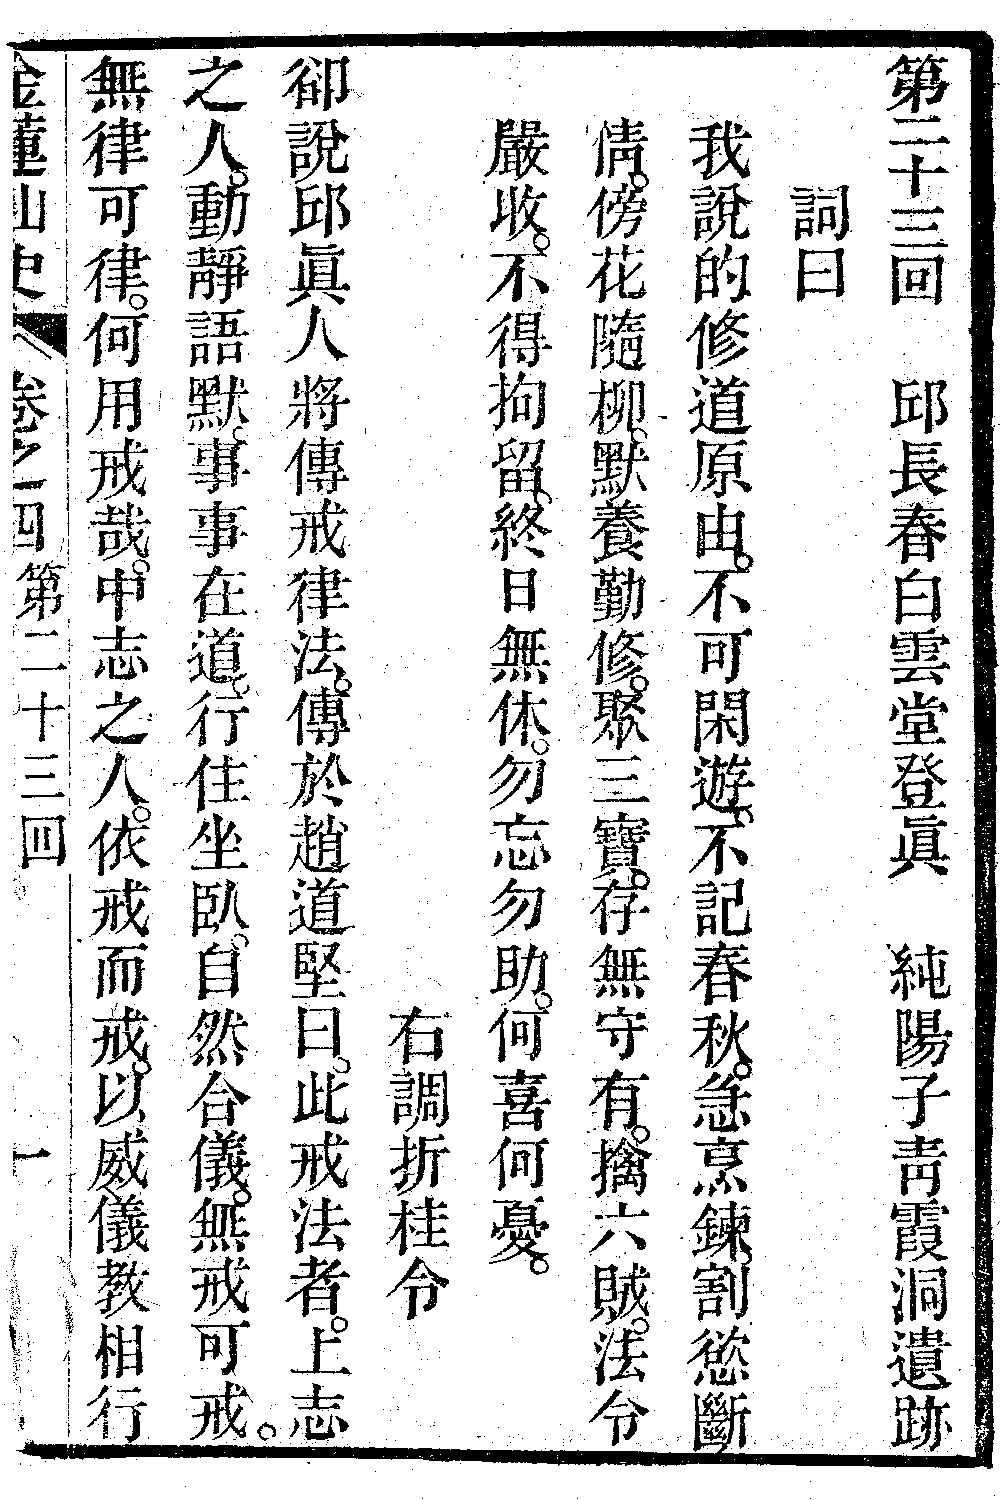 第二十三回　邱長春白雲堂登眞　純陽子靑霞洞遺跡
詞曰
我說的修道原由。不可閑遊。不記春秋。急烹鍊。割慾斷
情。傍花隨柳。默養勤修。聚三寶。存無守有。擒六賊。法令
嚴收。不得拘留。終日無休。勿忘勿助。何喜何憂。
右調折桂令
卻說邱眞人將傳戒律法。傳於趙道堅曰。此戒法者。上志
之人。動靜語默。事事在道。行住坐臥。自然合儀。無戒可戒。
無律可律。何用戒哉。中志之人。依戒而戒。以威儀教相行
金蓮仙史　卷之四　第二十三回　一